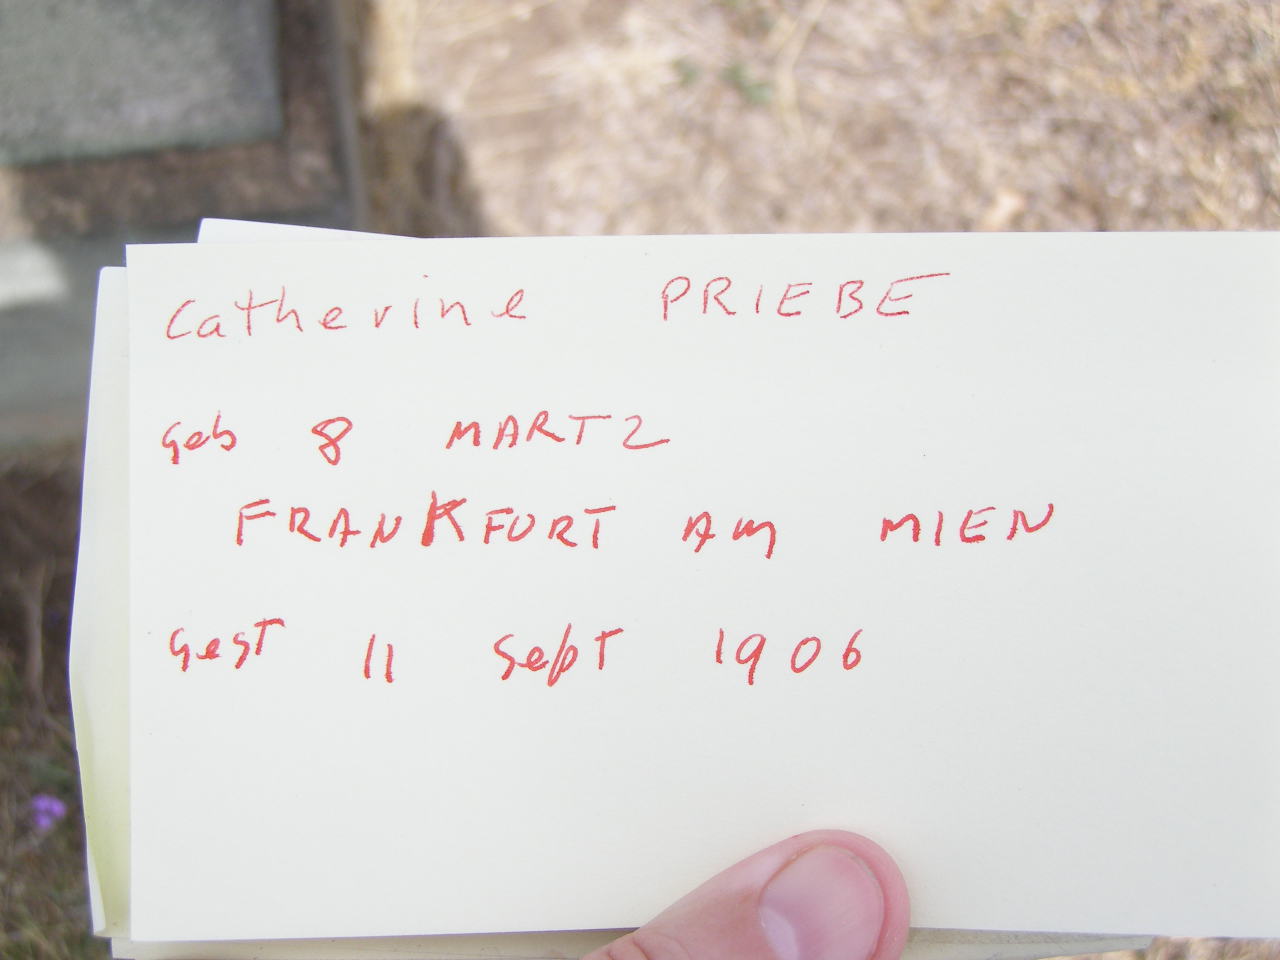 Catherine PRIEBE
geb 8 MARTZ
FRANKFURT AM MIEN
gest 11 Sept 1906